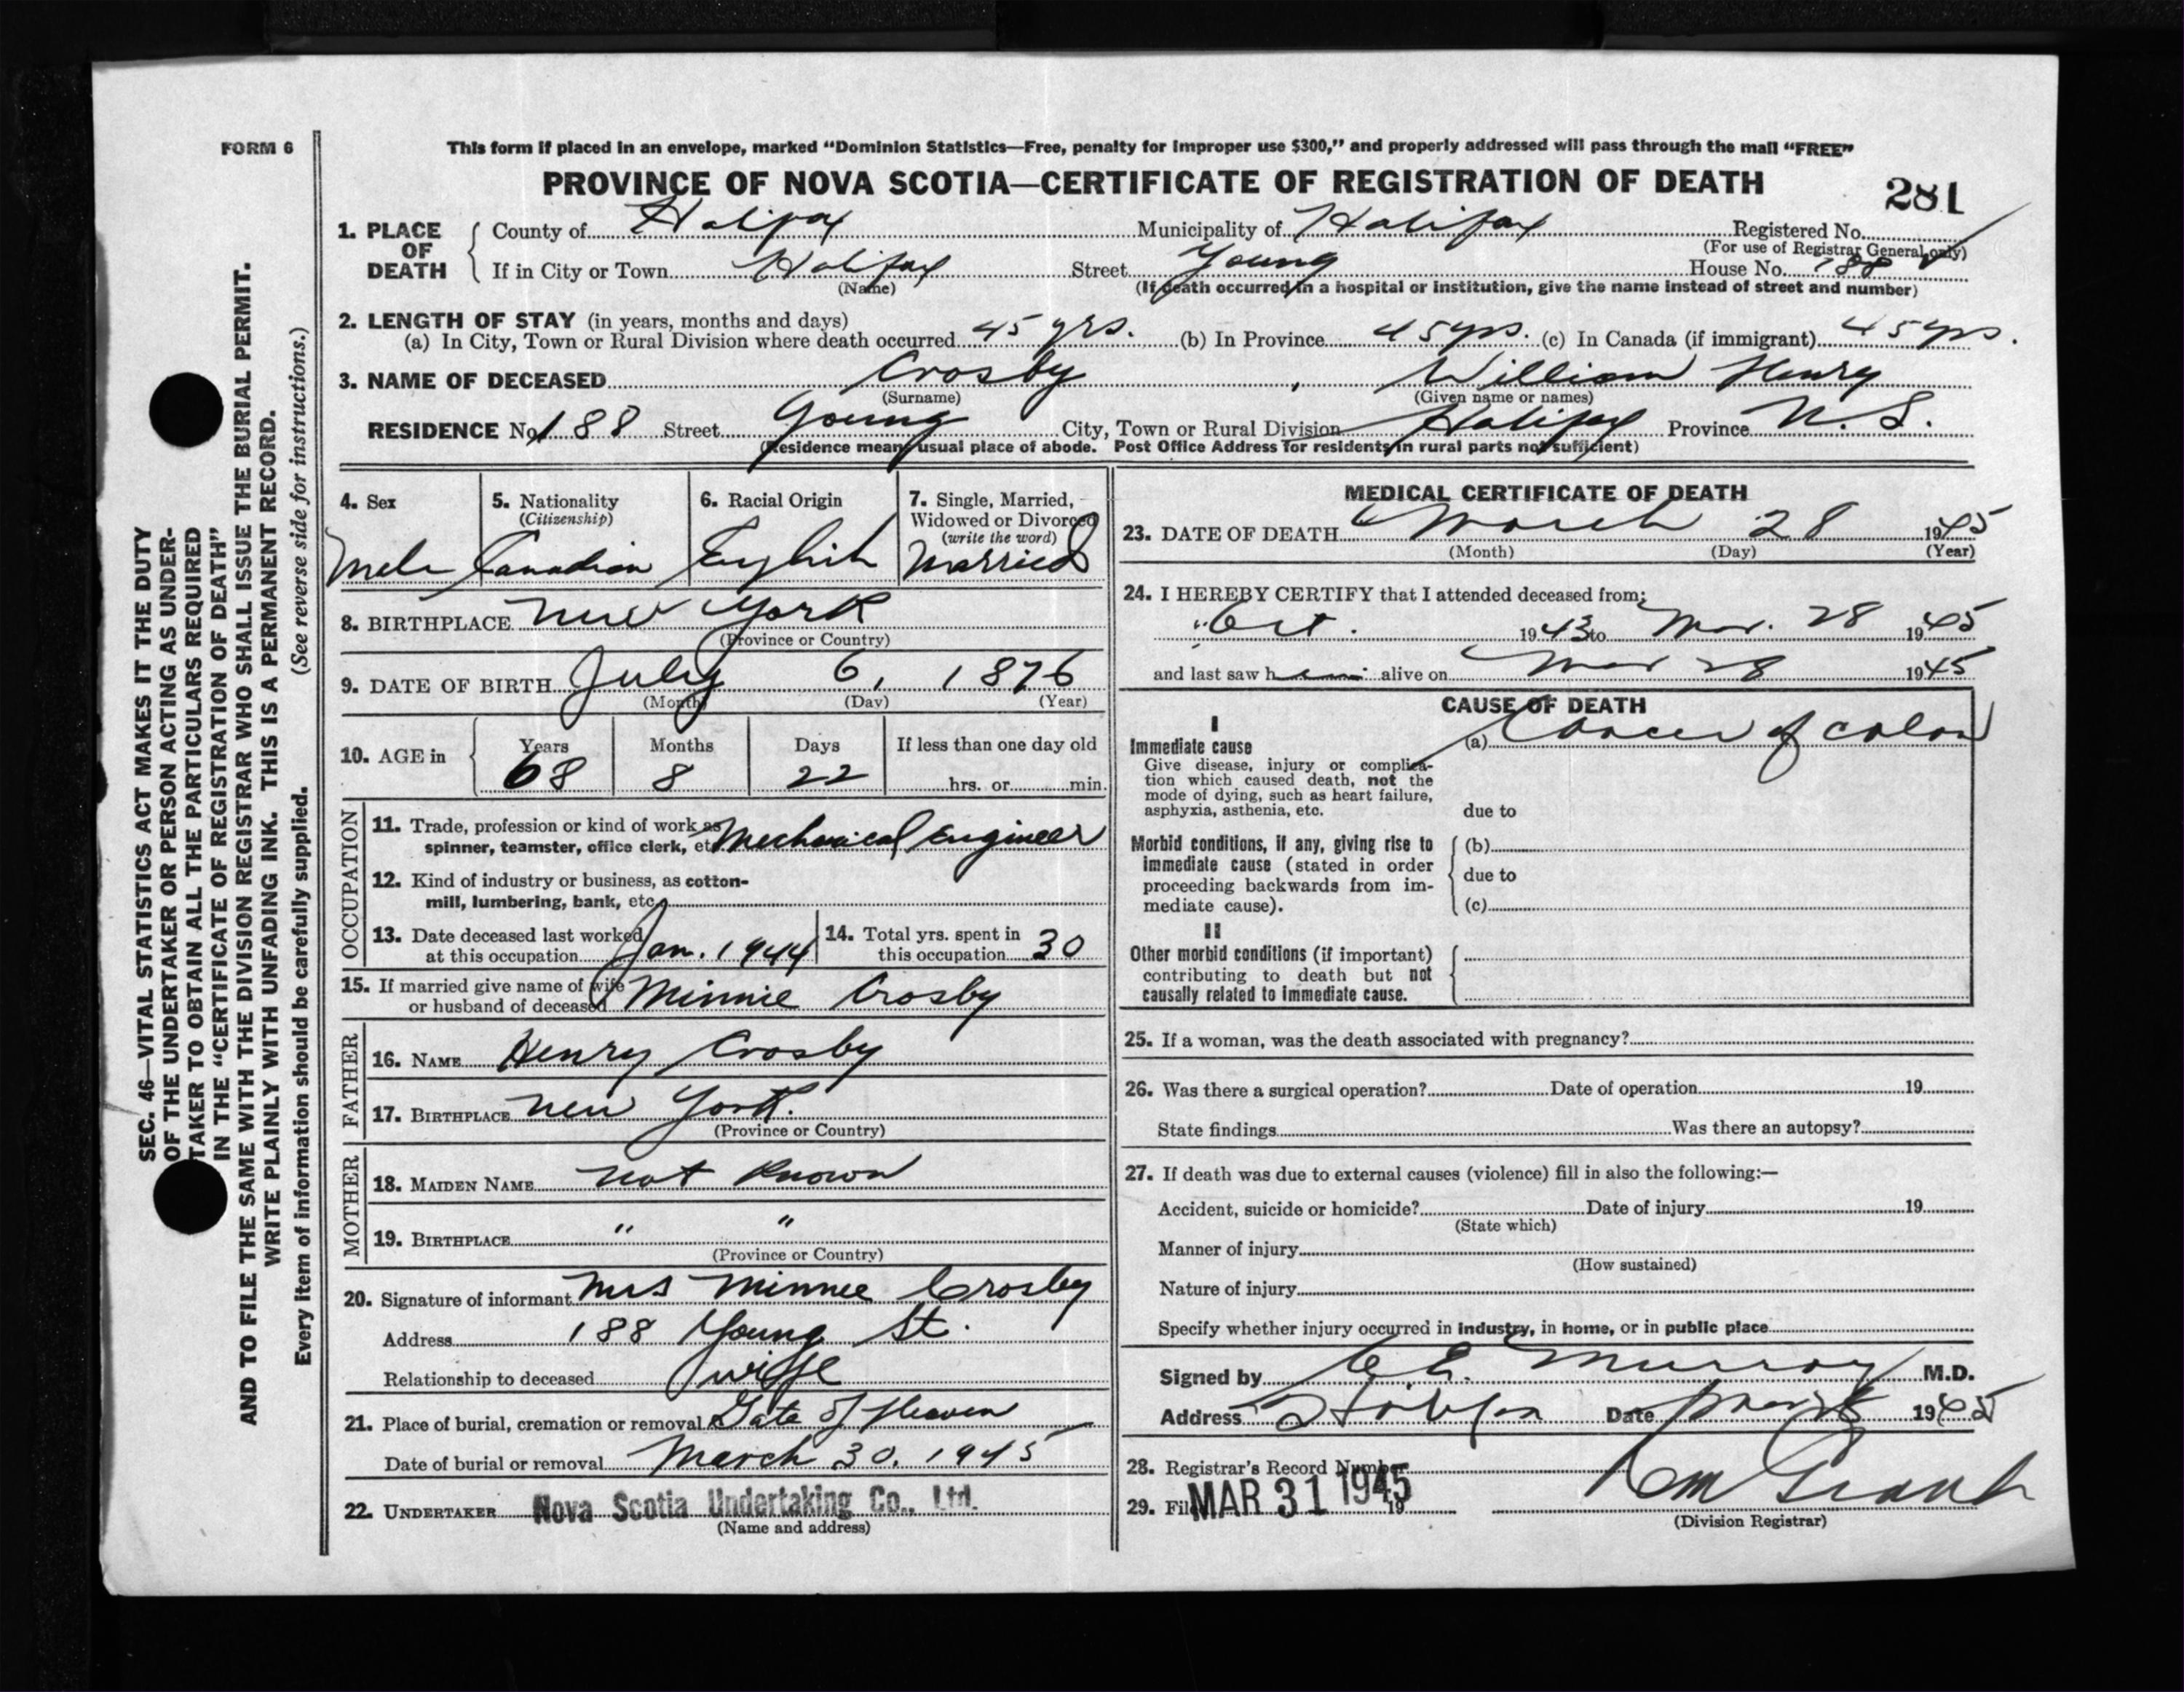 FORM 6
This form if placed in an envelope, marked “Dominion Statistics—Free, penalty for improper use $300,” and properly addressed will pass through the mail “FREE”
PROVINCE OF NOVA SCOTIA—CERTIFICATE OF REGISTRATION OF DEATH
281
1. PLACE OF DEATH
County of Halifax Municipality of Halifax Registered No.
(For use of Registrar General only)
If in City or Town Halifax Street Young House No. 188
(Name) (If death occurred in a hospital or institution, give the name instead of street and number)
2. LENGTH OF STAY (in years, months and days)
(a) In City, Town or Rural Division where death occurred 45 yrs. (b) In Province 45 yrs. (c) In Canada (if immigrant) 45 yrs.
3. NAME OF DECEASED Crosby, William Henry
(Surname) (Given name or names)
RESIDENCE No. 188 Street Young City, Town or Rural Division Halifax Province N.S.
(Residence means usual place of abode. Post Office Address for residents in rural parts not sufficient)
4. Sex
Male
5. Nationality
(Citizenship)
Canadian
6. Racial Origin
English
7. Single, Married,
Widowed or Divorced
(write the word)
Married
8. BIRTHPLACE New York
(Province or Country)
9. DATE OF BIRTH July 6, 1876
(Month) (Day) (Year)
10. AGE in Years Months Days If less than one day old
68 8 22 hrs. or min.
OCCUPATION
11. Trade, profession or kind of work as
spinner, teamster, office clerk, etc. Mechanical Engineer
12. Kind of industry or business, as cotton-
mill, lumbering, bank, etc.
13. Date deceased last worked
at this occupation Jan. 1944
14. Total yrs. spent in
this occupation 30
15. If married give name of wife
or husband of deceased Minnie Crosby
FATHER
16. NAME Henry Crosby
17. BIRTHPLACE New York.
(Province or Country)
MOTHER
18. MAIDEN NAME not known
19. BIRTHPLACE " "
(Province or Country)
20. Signature of informant Mrs Minnie Crosby
Address 188 Young St.
Relationship to deceased wife
21. Place of burial, cremation or removal Gate of Heaven
Date of burial or removal March 30, 1945
22. UNDERTAKER Nova Scotia Undertaking Co., Ltd.
(Name and address)
MEDICAL CERTIFICATE OF DEATH
23. DATE OF DEATH March 28 1945
(Month) (Day) (Year)
24. I HEREBY CERTIFY that I attended deceased from:
Oct. 1943 to Mar. 28 1945
and last saw him alive on Mar 28 1945
CAUSE OF DEATH
I
Immediate cause (a) Cancer of colon
Give disease, injury or complica-
tion which caused death, not the
mode of dying, such as heart failure,
asphyxia, asthenia, etc. due to
Morbid conditions, if any, giving rise to (b)
immediate cause (stated in order
proceeding backwards from im- due to
mediate cause). (c)
II
Other morbid conditions (if important)
contributing to death but not
causally related to immediate cause.
25. If a woman, was the death associated with pregnancy?
26. Was there a surgical operation? Date of operation 19
State findings Was there an autopsy?
27. If death was due to external causes (violence) fill in also the following:—
Accident, suicide or homicide? Date of injury 19
(State which)
Manner of injury
(How sustained)
Nature of injury
Specify whether injury occurred in industry, in home, or in public place
Signed by C.E. Murray M.D.
Address Halifax Date Mar 1945
28. Registrar's Record Number
29. Filed MAR 31 1945 19
(Division Registrar)
SEC. 46—VITAL STATISTICS ACT MAKES IT THE DUTY
OF THE UNDERTAKER OR PERSON ACTING AS UNDER-
TAKER TO OBTAIN ALL THE PARTICULARS REQUIRED
IN THE “CERTIFICATE OF REGISTRATION OF DEATH”
AND TO FILE THE SAME WITH THE DIVISION REGISTRAR WHO SHALL ISSUE THE BURIAL PERMIT.
WRITE PLAINLY WITH UNFADING INK. THIS IS A PERMANENT RECORD.
Every item of information should be carefully supplied. (See reverse side for instructions.)